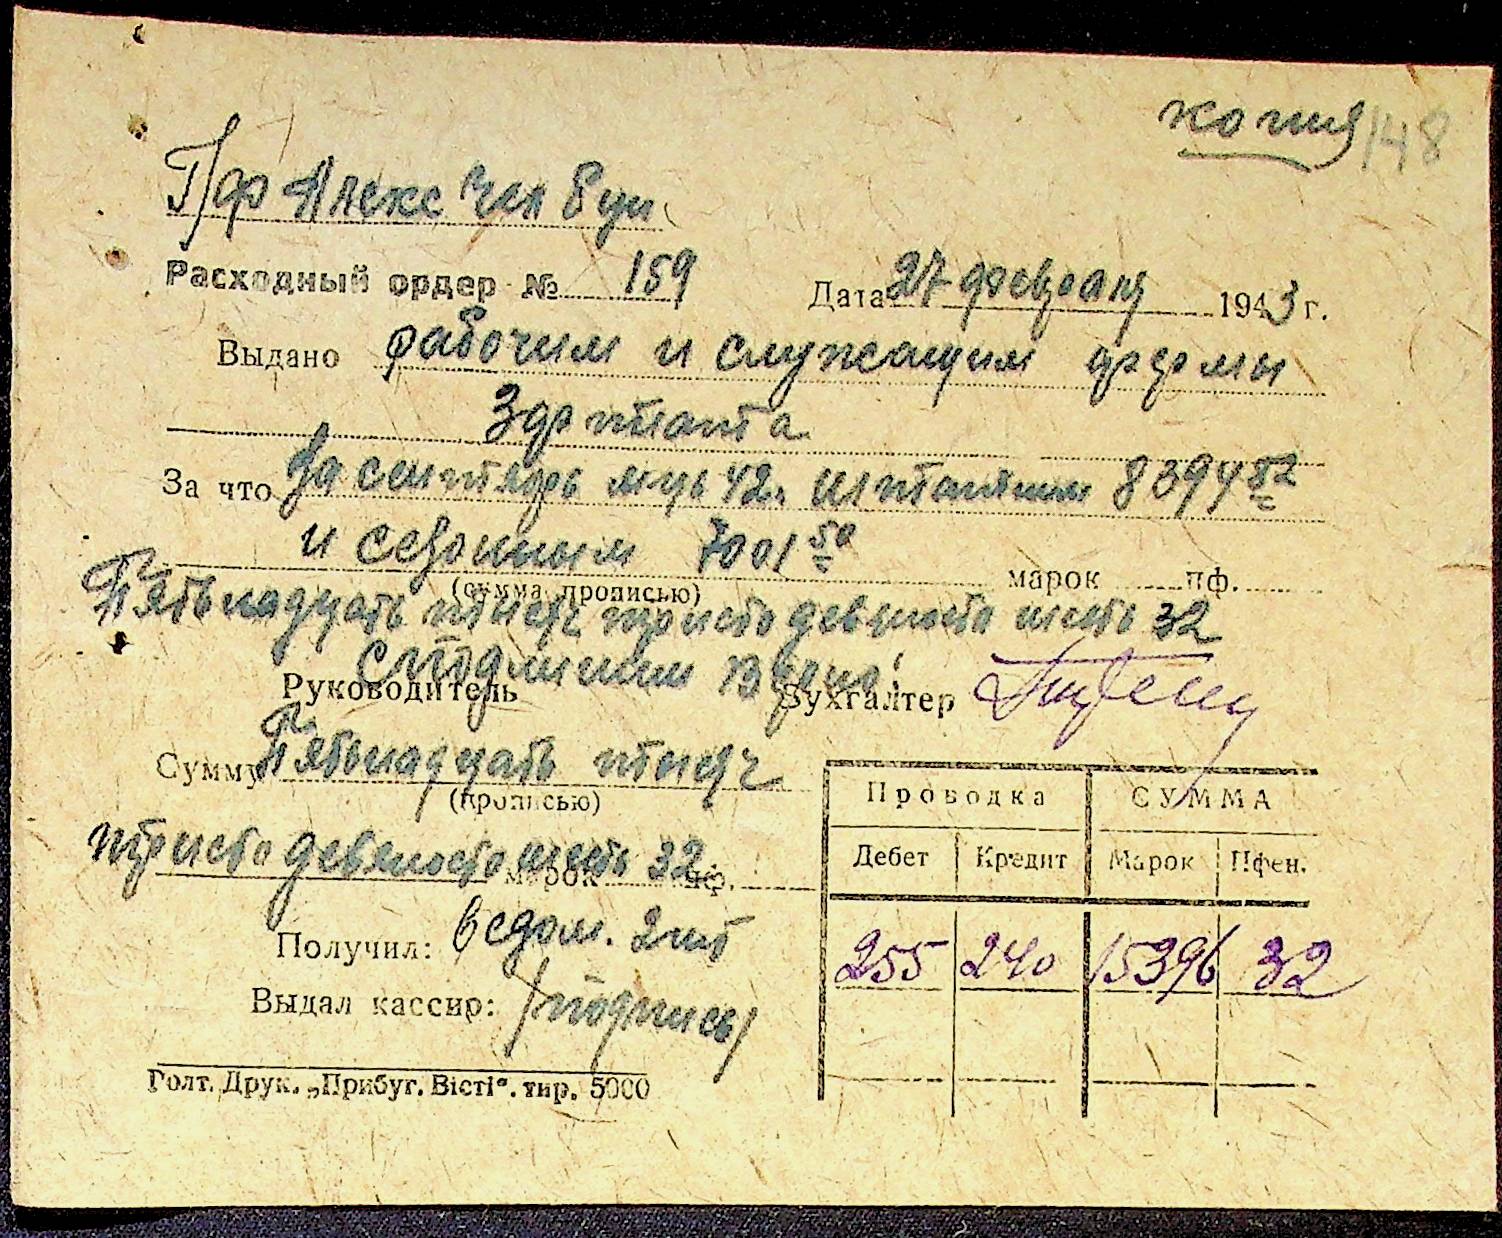 копия 148
П/ф Алекс
Расходный ордер № 159 Дата 27 февраля 1943 г.
Выдано рабочим и служащим фермы
За что За сентябрь м-ць 42 г. штатным 8394 52
и сезонным 7001 50 марок пф.
(сумма прописью)
Пятьнадцать тысяч тристо девяносто шесть 32
С подлинным верно:
Руководитель Бухгалтер
Сумму Пятьнадцать тысяч
(прописью)
тристо девяносто шесть 32 марок пф.
Проводка СУММА
Дебет Кредит Марок Пфен.
255 240 15396 32
Получил: ведом. 2 шт
Выдал кассир: /подпись/
Голт. Друк. „Прибуг. Вісті“. тир. 5000